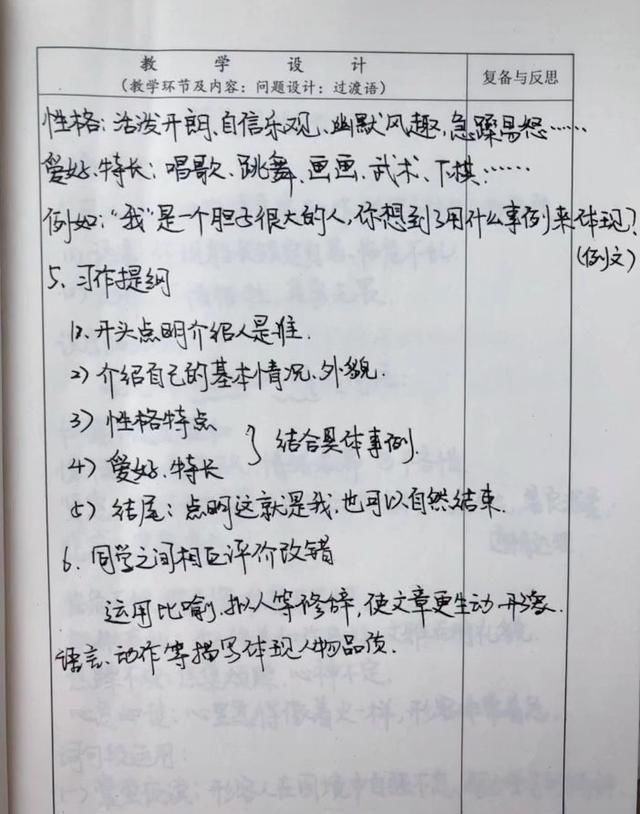 教 学 设 计
（教学环节及内容：问题设计：过渡语）
复备与反思
性格：活泼开朗、自信乐观、幽默风趣，急躁易怒……
爱好、特长：唱歌、跳舞、画画、武术、下棋……
例如：“我”是一个胆子很大的人，你想到了用什么事例来体现？
（例文）
5、习作提纲
1）、开头点明介绍人是谁．
2）介绍自己的基本情况、外貌．
3）性格特点
4）爱好、特长
} 结合具体事例．
5）结尾：点明这就是我，也可以自然结束．
6、同学之间相互评价改错
运用比喻、拟人等修辞，使文章更生动形象．
语言、动作等描写体现人物品质．